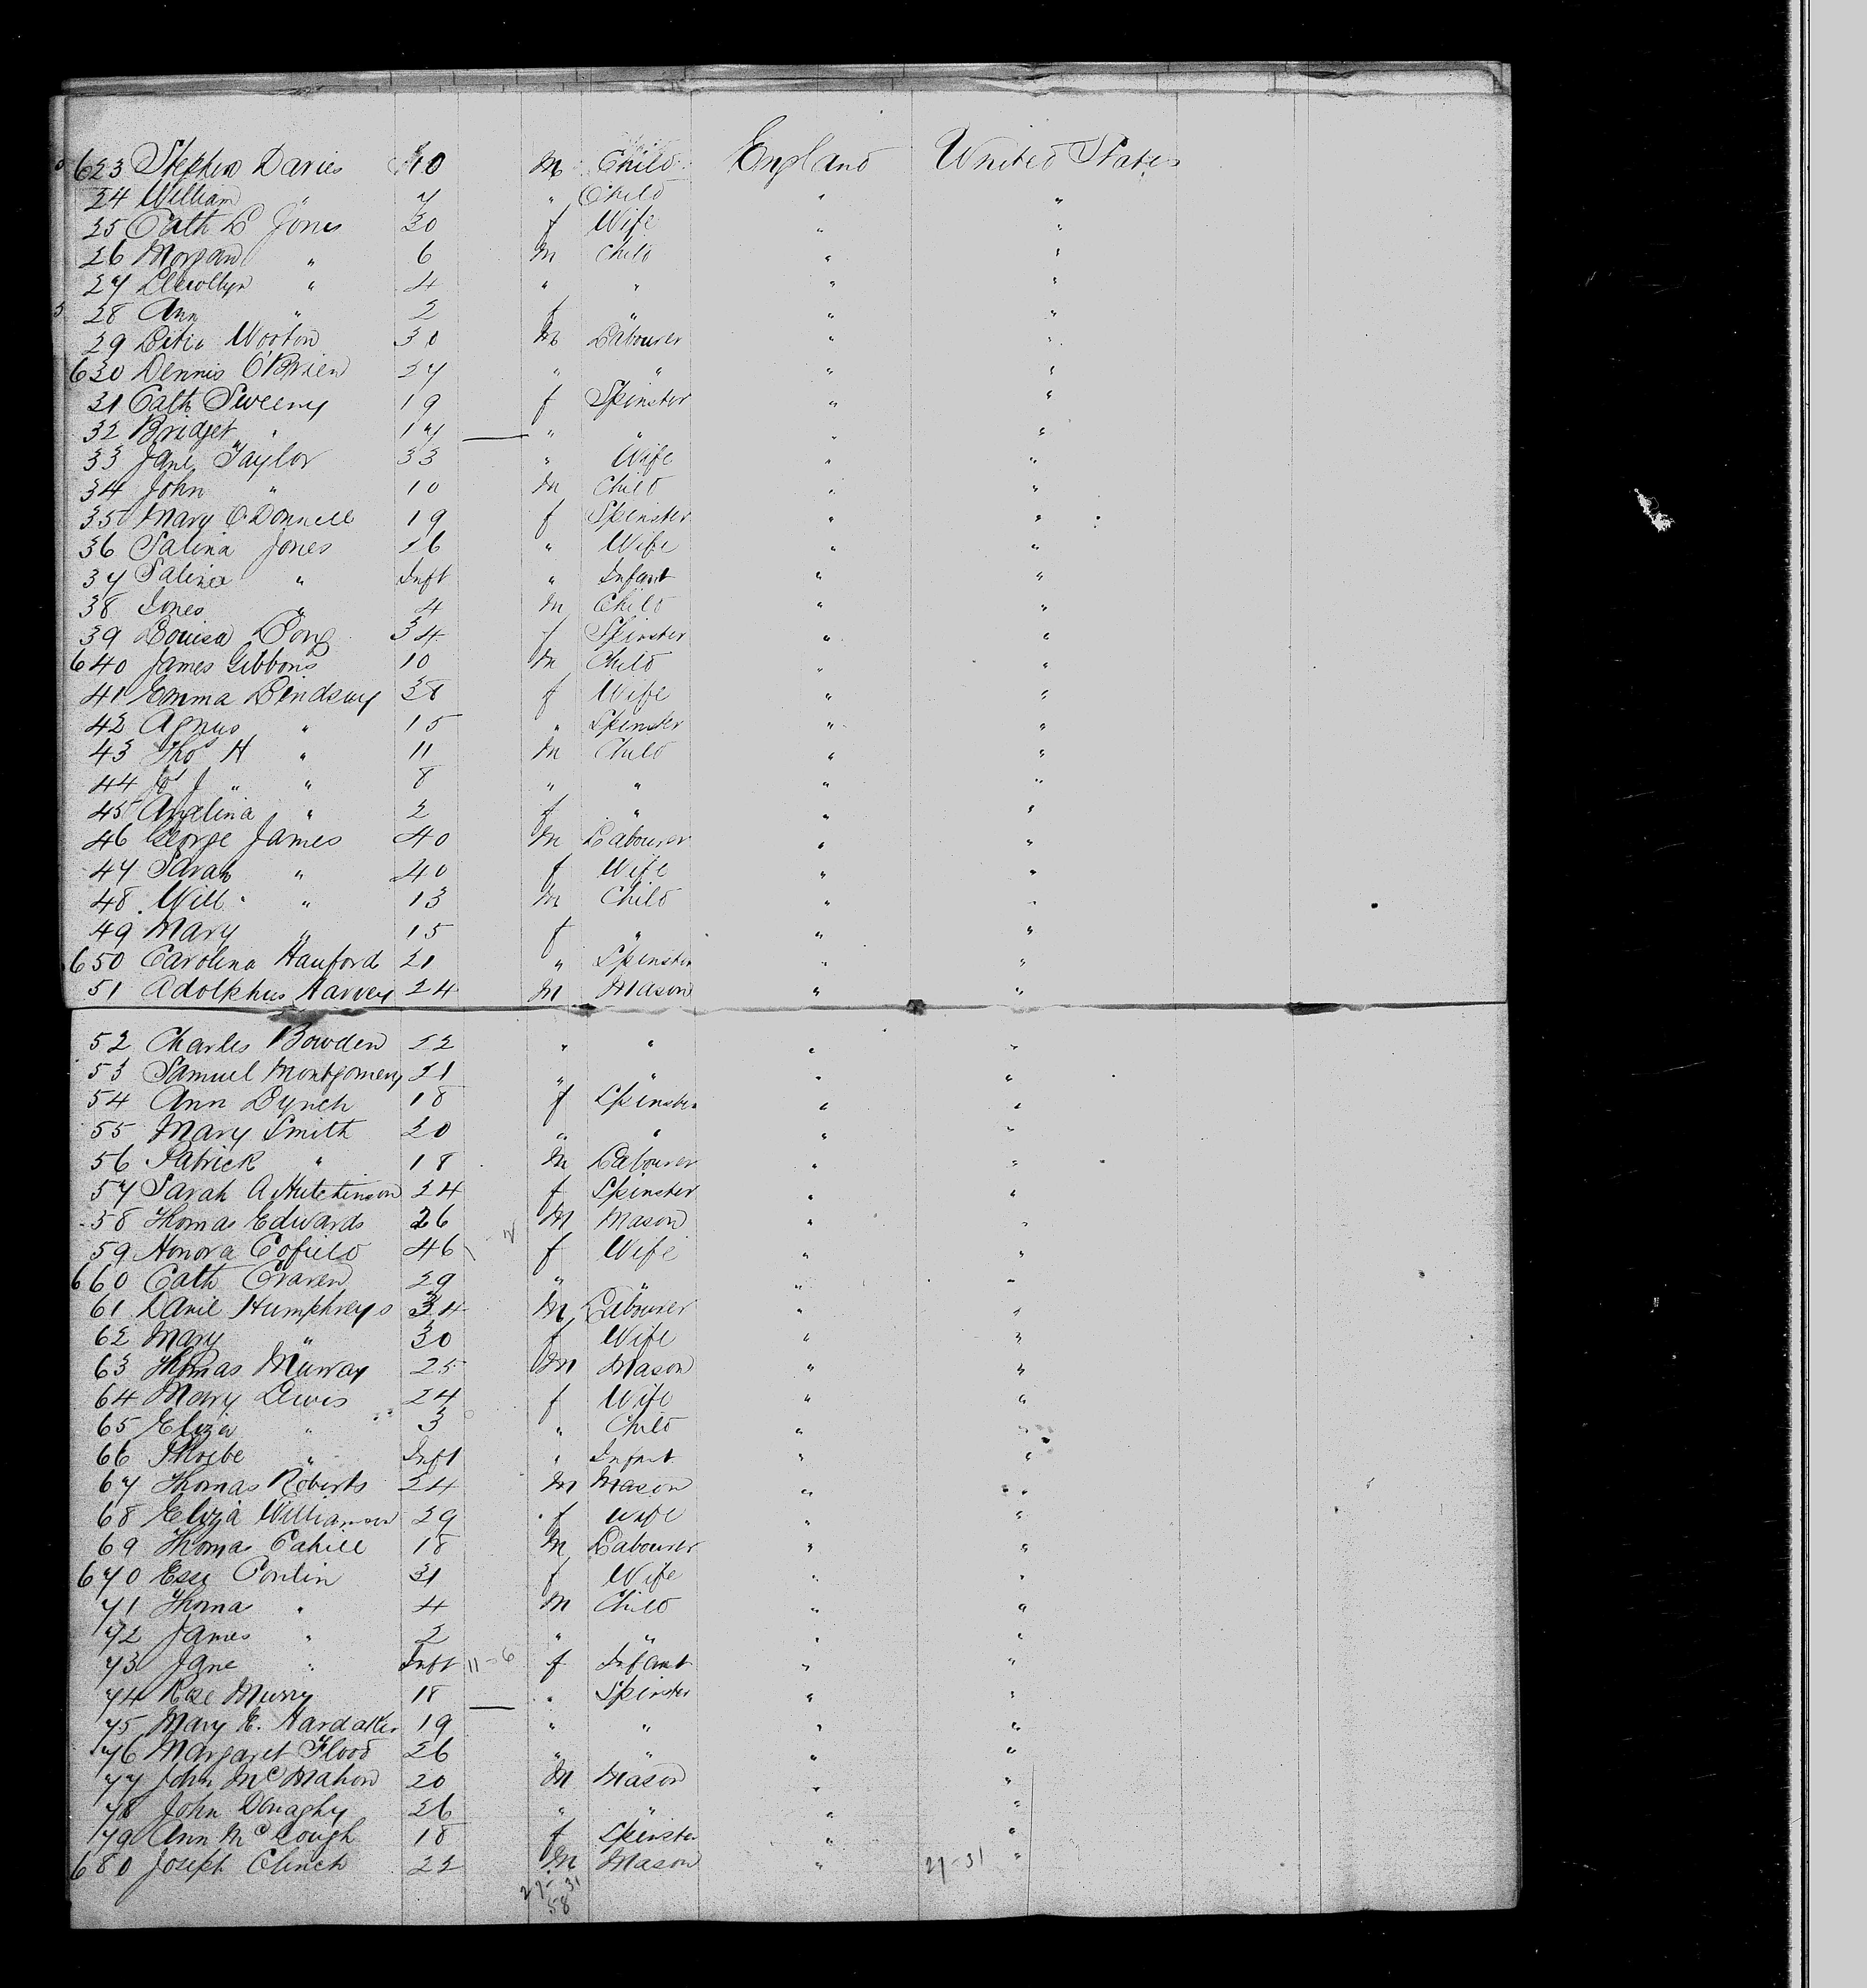 623 Stephen Davies 10 M Child England United States
24 William " 7 " Child " "
25 Cath L Jones 30 f Wife " "
26 Morgan " 6 M Child " "
27 Llewollyn " 4 " " " "
28 Ann " 2 f " " "
29 Wooton 30 M Labourer " "
630 Dennis O'Brien 27 " " " "
31 Cath Sweeny 19 f Spinster " "
32 Bridget " 17 " " " "
33 Jane Taylor 33 " Wife " "
34 John " 10 M Child " "
35 Mary O'Donnell 19 f Spinster " "
36 Salina Jones 26 " Wife " "
37 Salina " Inft " Infant " "
38 Jones " 4 M Child " "
39 Louisa Long 34 f Spinster " "
640 James Gibbons 10 M Child " "
41 Emma Lindsay 38 f Wife " "
42 Agnus " 15 " Spinster " "
43 Thos H " 11 M Child " "
44 Jos J " " 8 " " " "
45 Angelina " 2 f " " "
46 George James 40 M Labourer " "
47 Sarah " 40 f Wife " "
48 Will " " 13 M Child " "
49 Mary " 15 f " " "
650 Carolina Hanford 21 " Spinster " "
51 Adolphus Harvey 24 M Mason " "
52 Charles Bowden 22 " " " "
53 Samuel Montgomery 21 " " " "
54 Ann Lynch 18 f Spinster " "
55 Mary Smith 20 " " " "
56 Patrick " 18 M Labourer " "
57 Sarah A Hutchinson 24 f Spinster " "
58 Thomas Edwards 26 M Mason " "
59 Honora Cofield 46 f Wife " "
660 Cath Craven 29 " " " "
61 Danil Humphreys 34 M Labourer " "
62 Mary " 30 f Wife " "
63 Thomas Murray 25 M Mason " "
64 Mary Lewis 24 f Wife " "
65 Eliza " 3 " Child " "
66 Phoebe " Inft " Infant " "
67 Thomas Roberts 24 M Mason " "
68 Eliza Williamson 29 f Wife " "
69 Thomas Cahill 18 M Labourer " "
670 Essy Conlin 31 f Wife " "
71 Thoma " 4 M Child " "
72 James " 2 " " " "
73 Jane " Inft 11-6 f Infant " "
74 Rose Murry 18 " Spinster " "
75 Mary E. Hardaker 19 " " " "
76 Margaret Flood 26 " " " "
77 John McMahon 20 M Mason " "
78 John Donaghy 26 " " " "
79 Ann McGough 18 f Spinster " "
680 Joseph Clinch 22 M Mason " 27-31 "
27-31
58